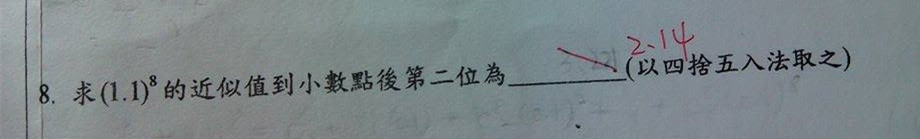 2.14
8. 求(1.1)⁸的近似值到小數點後第二位為______(以四捨五入法取之)